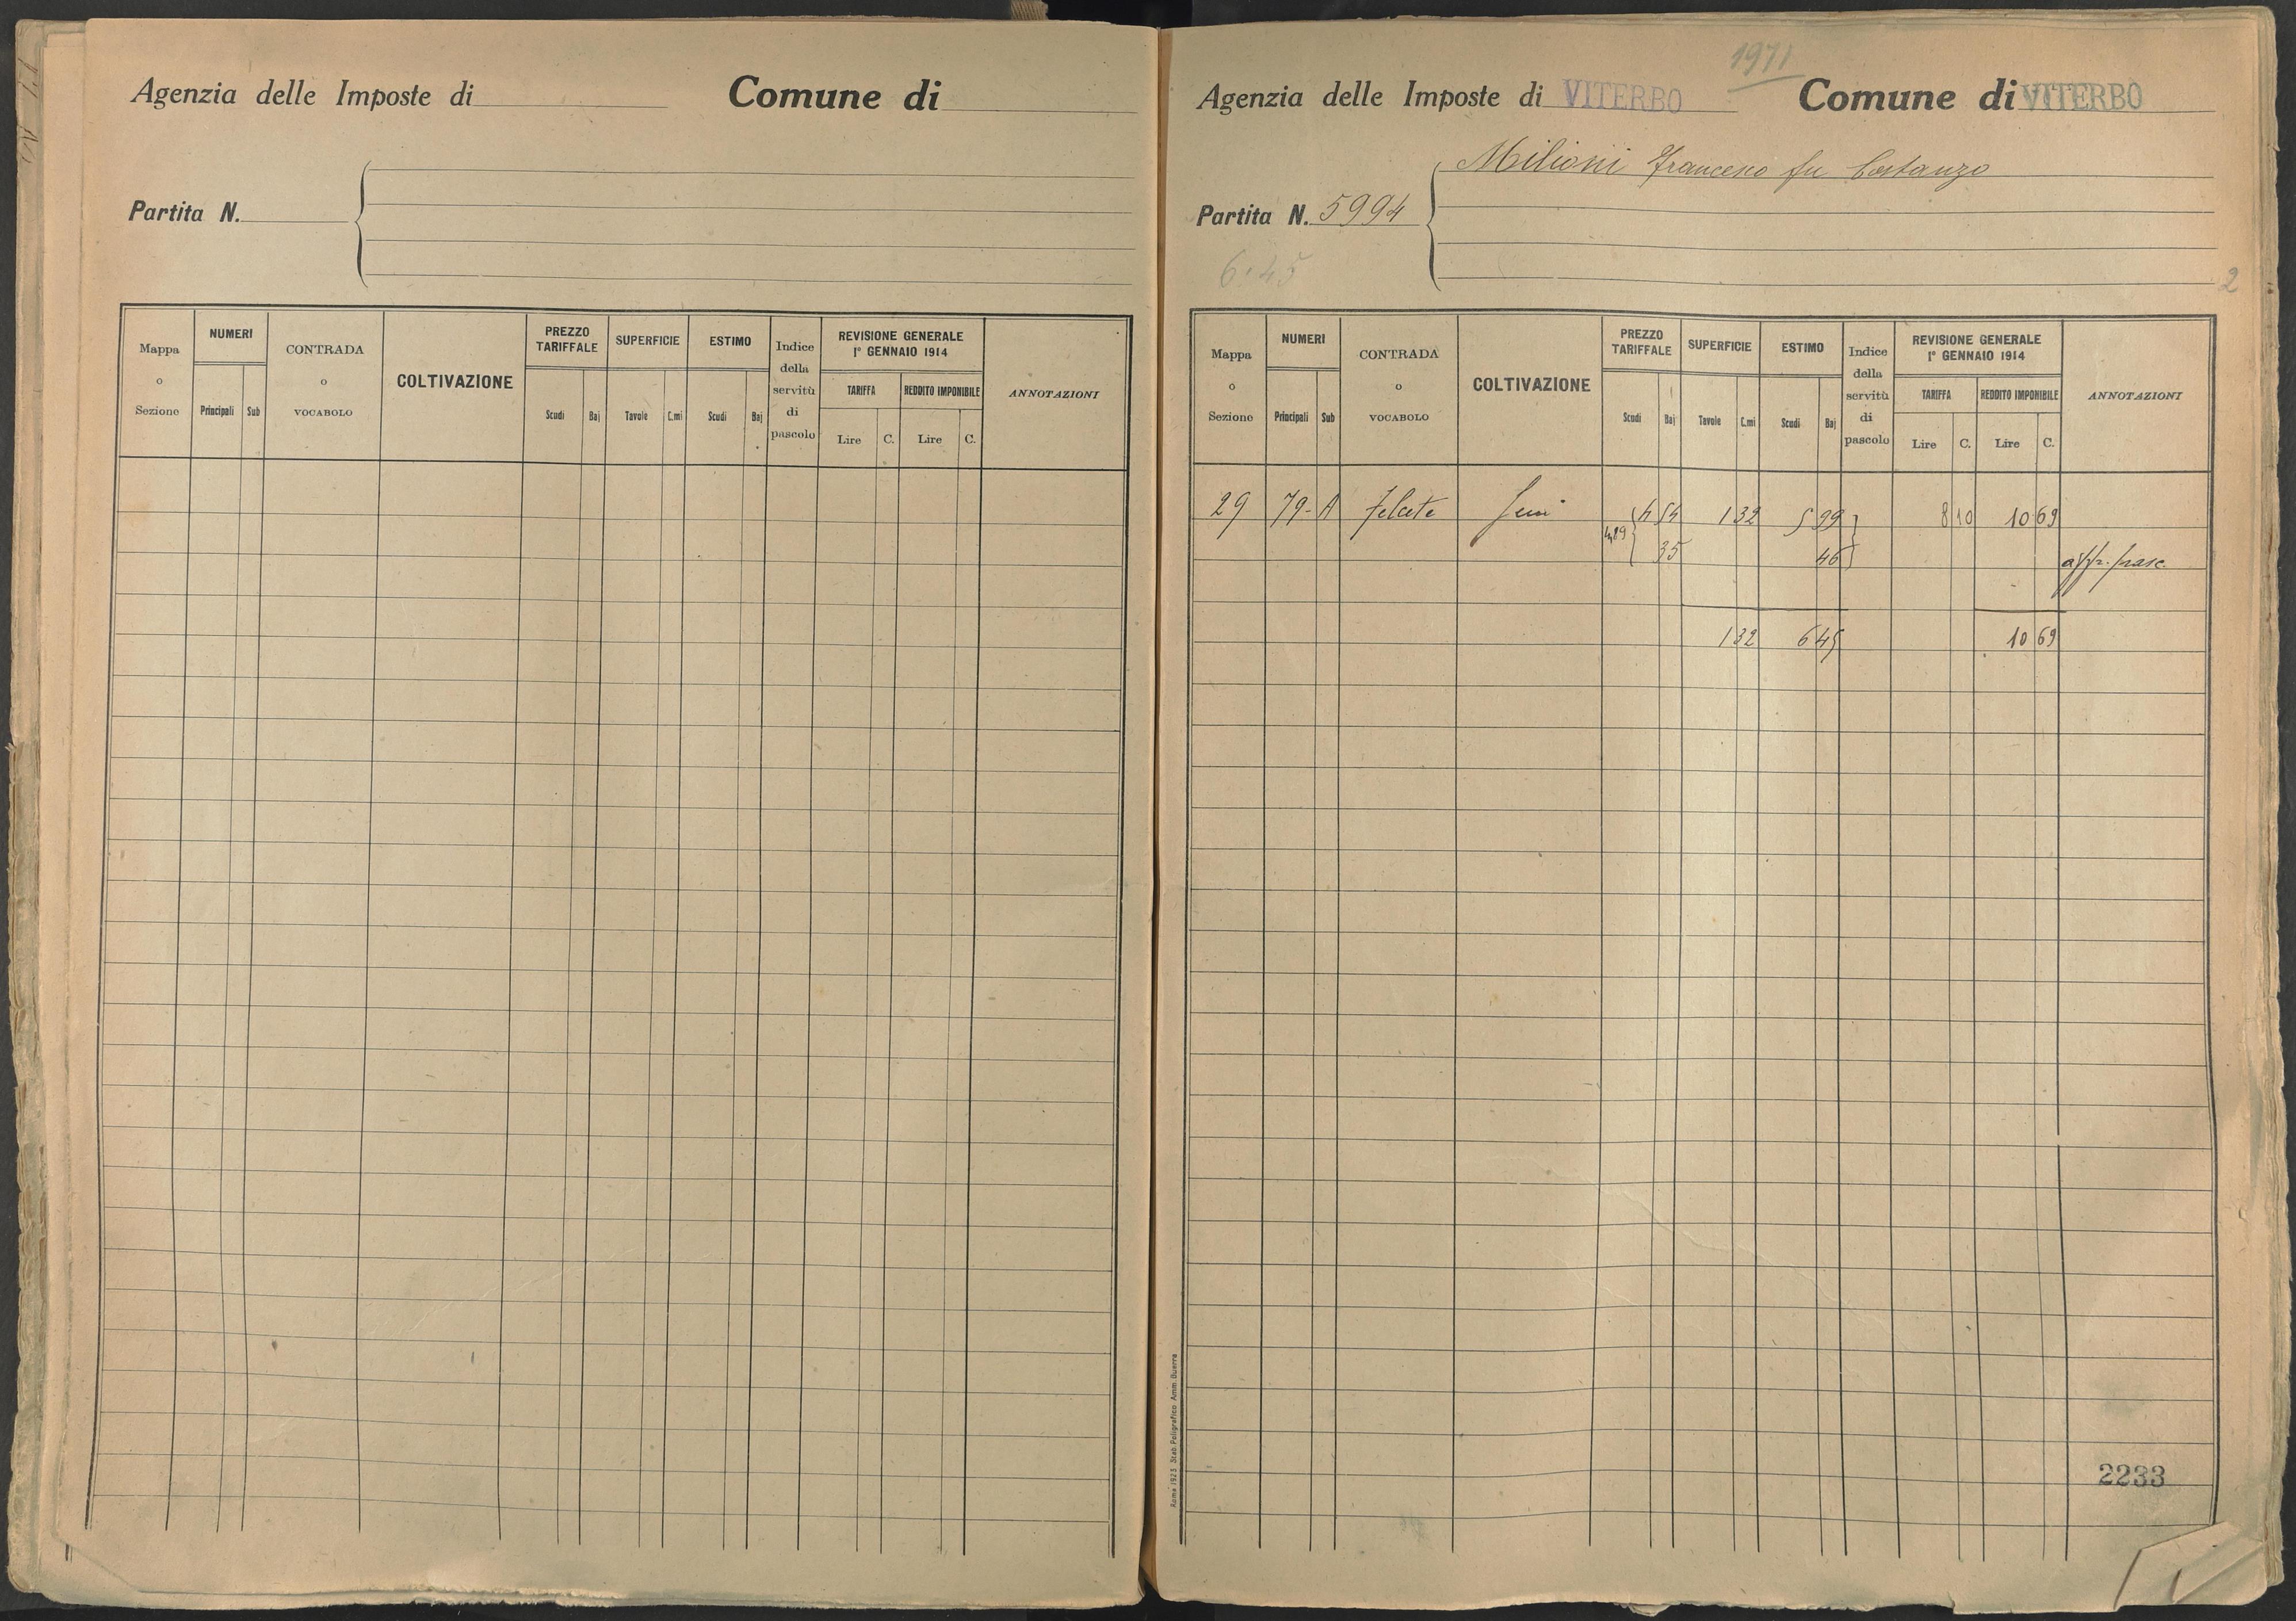 Agenzia delle Imposte di Comune di
Partita N.
Mappa o Sezione NUMERI Principali Sub CONTRADA o VOCABOLO COLTIVAZIONE PREZZO TARIFFALE Scudi Baj SUPERFICIE Tavole C.mi ESTIMO Scudi Baj Indice della servitù di pascolo REVISIONE GENERALE 1° GENNAIO 1914 TARIFFA Lire C. REDDITO IMPONIBILE Lire C. ANNOTAZIONI
1971
Agenzia delle Imposte di VITERBO Comune di VITERBO
Milioni Francesco fu Costanzo
Partita N. 5994
6.45
2
Mappa o Sezione NUMERI Principali Sub CONTRADA o VOCABOLO COLTIVAZIONE PREZZO TARIFFALE Scudi Baj SUPERFICIE Tavole C.mi ESTIMO Scudi Baj Indice della servitù di pascolo REVISIONE GENERALE 1° GENNAIO 1914 TARIFFA Lire C. REDDITO IMPONIBILE Lire C. ANNOTAZIONI
29 79- A Felcete 4,89 4 54 1 32 5 99 8 10 10 69
35 46 affr. pasc.
1 32 6 45 10 69
Roma 1923 Stab. Poligrafico Amm. Guerra
2233